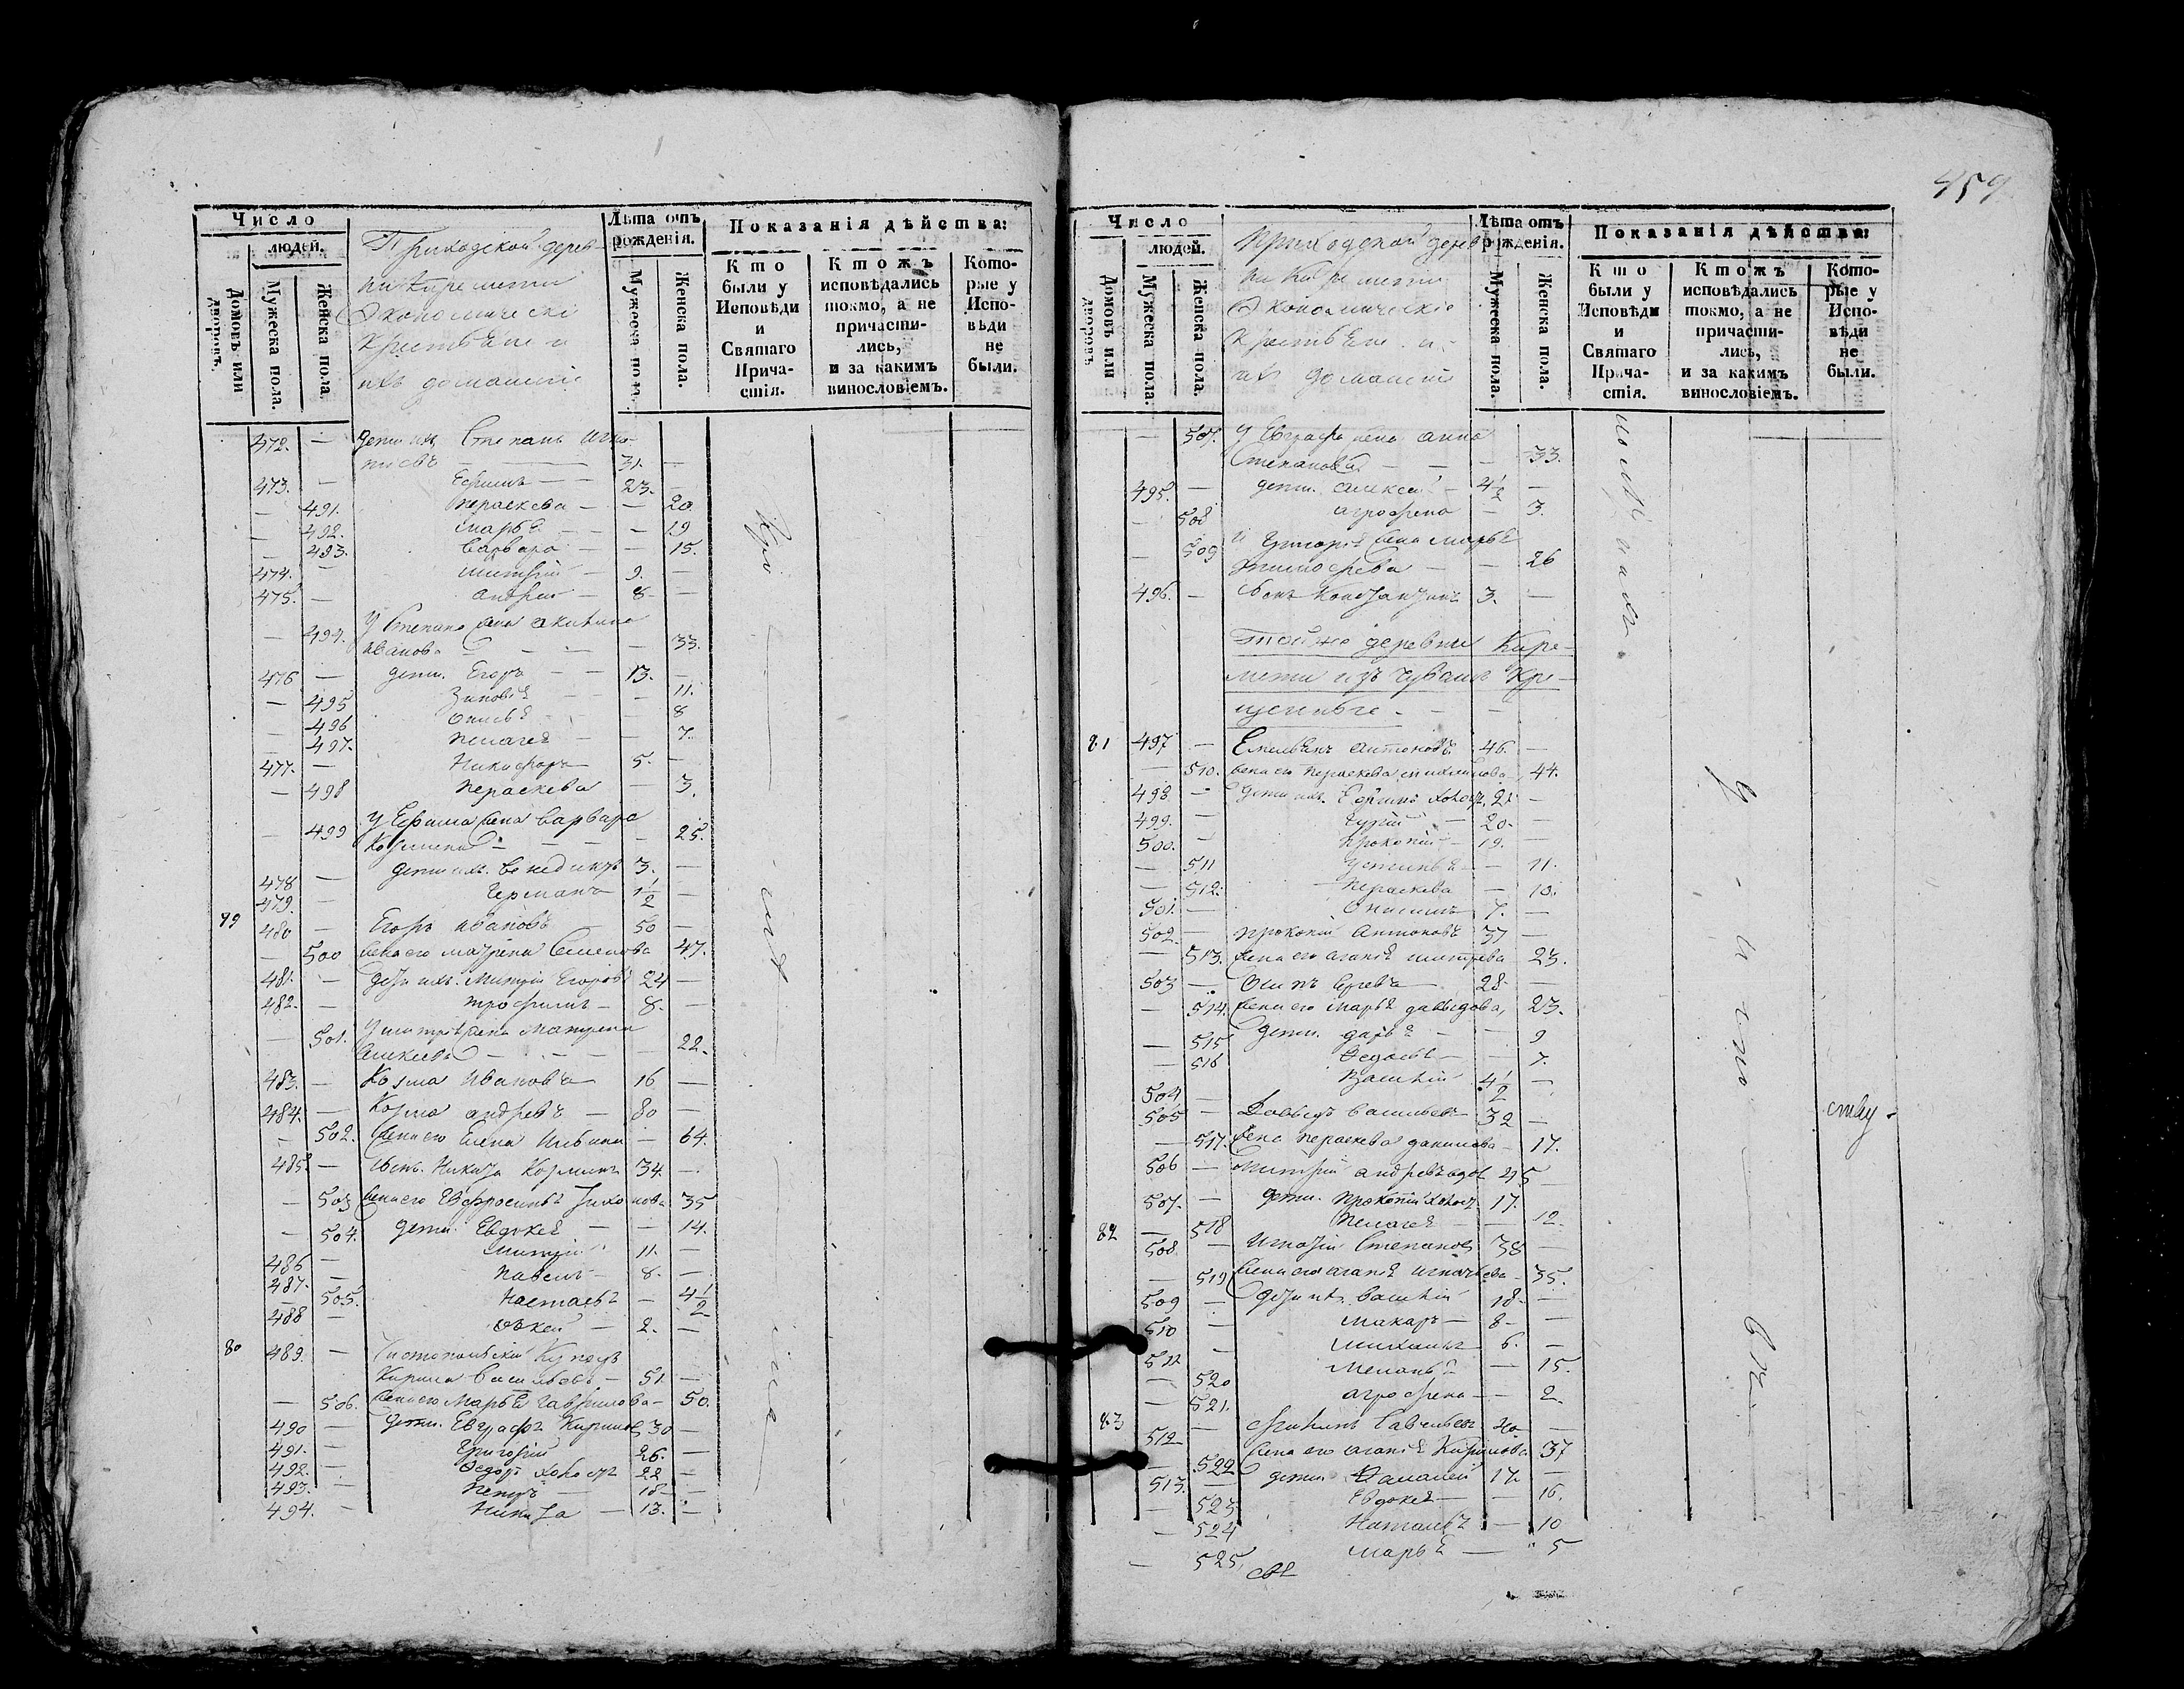 459
Число
людей.
Домовъ или дворовъ.
Мужеска пола.
Женска пола.
Приходской дерев-
ни Киремети
Экономическіе
Крестьяне и
ихъ домашніе
Лѣта отъ рожденія.
Мужеска пола.
Женска пола.
Показанія дѣйства:
Кто были у Исповѣди и Святаго Прича-стія.
Ктожъ исповѣдались токмо, а не причасти-лись, и за какимъ винословіемъ.
Кото-рые у Испо-вѣди не были.
472. — дети ихъ Степанъ Игна-
тьевъ — 31. —
473. — Ефимъ — 23. —
— 491. Пераскева — — 20
— 492. Марья — — 19
— 493. Варвара — — 15.
474. — Митрій — 9. —
475. — Андрей — 8. —
— 494. У Степана жена Акилина
Иванова — — 33.
476 — дети. Егоръ — 13. —
— 495 Зиновья — 11.
— 496 Анисья — 8
— 497. Пелагея — — 7.
477. — Никифоръ 5. —
— 498 Пераскева — 3.
— 499 У Ефима жена Варвара
Козмина — — 25.
478 — дети ихъ. Венедиктъ 3. —
479. — Германъ 1 1/2 —
79 480 — Егоръ Ивановъ 50 —
— 500 жена его Матрена Семенова 47.
481. — дети ихъ. Митрій Егоровъ 24 —
482. — Трофимъ — 8. —
— 501. У Митрія жена Матрена
Алексеева — — 22.
483. — Козма Ивановъ 16 —
484. — Козма Андреевъ — 80 —
— 502. жена его Елена Ильина — 64.
485. — сынъ. Никита Козминъ 34. —
— 503 жена его Евфросинья Тихонова 35
— 504. дети. Евдокея — — 14.
486 — Митрій 11. —
487. — Павелъ — 8. —
— 505. Настасья — 4 1/2
488 — 2. —
80 489. — Чистопольской Купецъ
Кирила Васильевъ — 51. —
— 506. жена его Марья Гаврилова — 50.
490 — дети. Евграфъ Кириловъ 30 —
491. — Григорій 26. —
492. — Федоръ холостъ 22 —
493. — Петръ — 18 —
494. — Никита — 13. —
Число
людей.
Домовъ или дворовъ.
Мужеска пола.
Женска пола.
Приходской дерев-
ни Киремети
Экономическіе
Крестьяне и
ихъ домашніе
Лѣта отъ рожденія.
Мужеска пола.
Женска пола.
Показанія дѣйства:
Кто были у Исповѣди и Святаго Прича-стія.
Ктожъ исповѣдались токмо, а не причасти-лись, и за какимъ винословіемъ.
Кото-рые у Испо-вѣди не были.
— 507. У Евграфа жена Анна
Степанова — — — 33.
495. — дети. Алексей — 4 1/2 —
— 508 Агрофена — 3.
— 509 У Григорья жена Марья
Тимофеева — — 26
496. — сынъ Константинъ 3. —
Тойже деревни Кире-
мети изъ Чувашъ Кре-
щеные — —
81 497 — Емельянъ Антоновъ 46. —
— 510. жена его Пераскева 44.
498 — дети ихъ. Ефимъ холостъ 21 —
499. — 20. —
500. — Прокопій — 19. —
— 511 Устинья — — 11.
— 512. Пераскева — 10.
501. — Онисимъ 7. —
502 — Прокопій Антоновъ 37 —
— 513. жена его Агафья Митрева 23.
503 — Осипъ 28. —
— 514. жена его Марья Давыдова, 23.
— 515 дети. Дарья — — 9
— 516 Федосья — — 7.
504 — Василій 4 1/2 —
505 — Давыдъ Васильевъ — 32 —
— 517. жена Пераскева Данилова — 17.
506 — Митрій Андреевъ вдовъ 45 —
507. — дети. Прокопій холостъ 17.
— 518 Пелагея — — 12.
82 508. — Игнатій Степановъ 38 —
— 519 жена его Агафья Игнатьева — 35.
509 — дети ихъ. Василій 18. —
510 — Макаръ — 8 — —
511 — Михаилъ 6. —
— 520 Меланья — 15.
— 521. Агрофена — — 2.
83 512 — Филипъ Савельевъ 40 —
— 522 жена его Агафья Кирилова 37
513. — дети 17. —
— 523 Евдокея — — 16.
— 524 Наталья — 10
— 525. Марья — 5
ству.